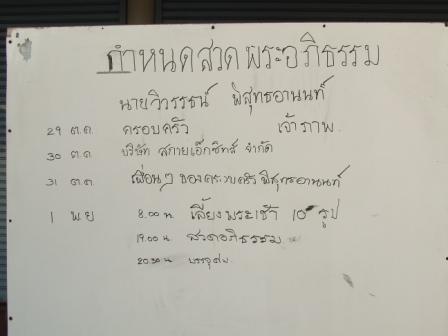 กำหนดสวดพระอภิธรรม
นายวิวรรธน์ พิสุทธอานนท์
29 ต.ค. ครอบครัว เจ้าภาพ
30 ต.ค บริษัท สกายเอ็กซิทส์ จำกัด
31 ต.ค. เพื่อนๆ ของครอบครัวพิสุทธอานนท์
1 พ.ย 8.00 น. เลี้ยงพระเช้า 10 รูป
19.00 น. สวดอภิธรรม
20.30 น. บรรจุศพ